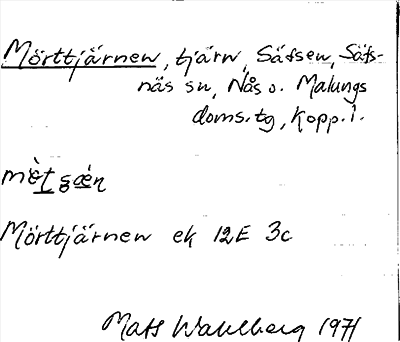 Mörttjärnen, tjärn, Säfsen, Säfs-
näs sn, Nås o. Malungs
doms.tg, Kopp. l.
Mörttjärnen ek 12E 3c
Mats Wahlberg 1971